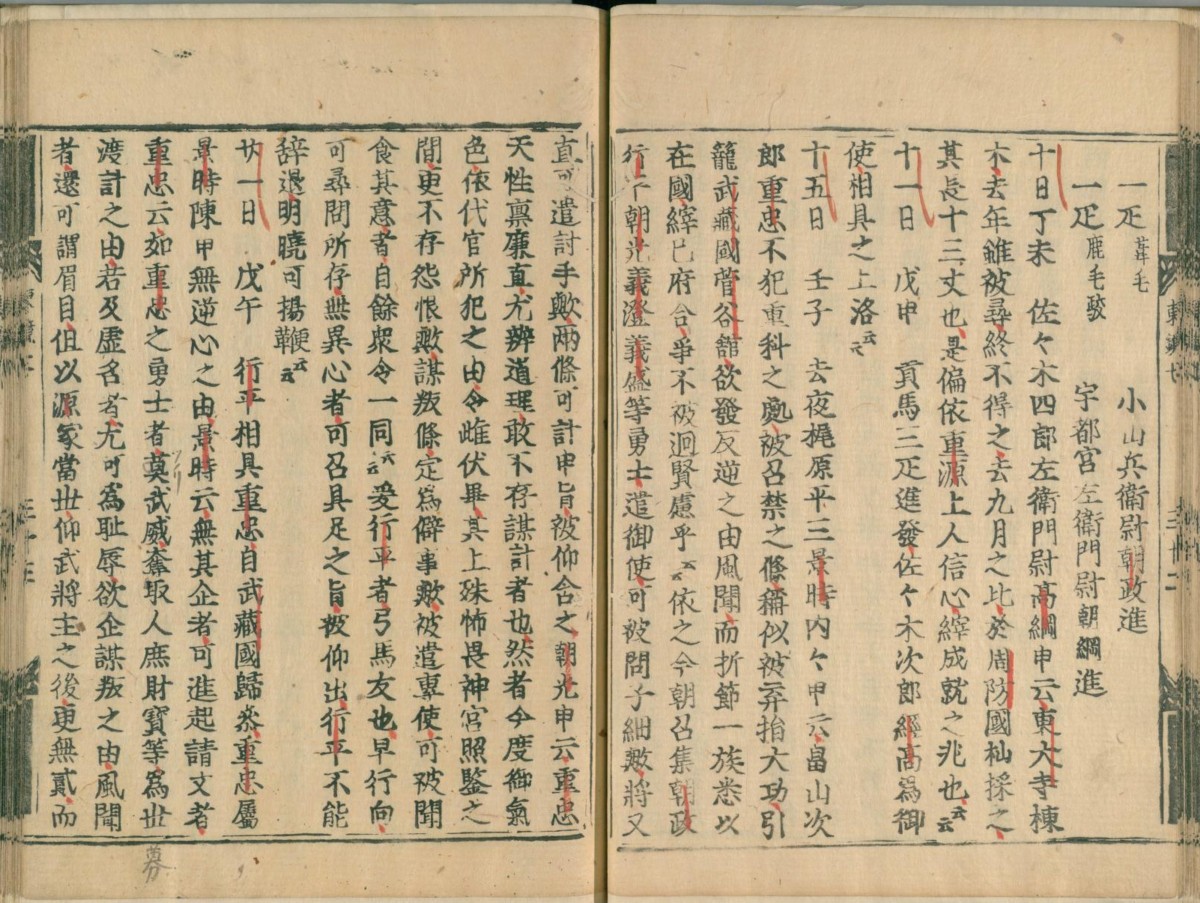 一疋 葦毛 小山兵衛尉朝政進
一疋 鹿毛駮 宇都宮左衛門尉朝綱進
十日丁未 佐々木四郎左衛門尉高綱申云東大寺棟
木去年雖被尋終不得之去九月之比於周防國杣採之
其長十三丈也是偏依重源上人信心縡成就之兆也云云
十一日 戊申 貢馬三疋進發佐々木次郎經高爲御
使相具之上洛云云
十五日 壬子 去夜梶原平三景時内々申云畠山次
郎重忠不犯重科之處被召禁之條稱似被弃捐大功引
籠武藏國菅谷館欲發反逆之由風聞而折節一族悉以
在國縡已府合爭不被迴賢慮乎云云依之今朝召集朝政
行平朝光義澄義盛等勇士遣御使可被問子細歟將又
直可遣討手歟兩條可計申旨被仰含之朝光申云重忠
天性禀廉直尤辨道理敢不存謀計者也然者今度御氣
色依代官所犯之由令雌伏畢其上殊怖畏神宮照鑒之
間更不存怨恨歟謀叛條定爲僻事歟被遣專使可被聞
食其意者自餘衆令一同云云爰行平者弓馬友也早行向
可尋問所存無異心者可召具足之旨被仰出行平不能
辞退明曉可揚鞭云云
廿一日 戊午 行平相具重忠自武藏國歸參重忠屬
景時陳申無逆心之由景時云無其企者可進起請文者
重忠云如重忠之勇士者募武威奪取人庶財寶等爲世
渡計之由若及虚名者尤可爲耻辱欲企謀叛之由風聞
者還可謂眉目但以源家當世仰武將主之後更無貳而
募